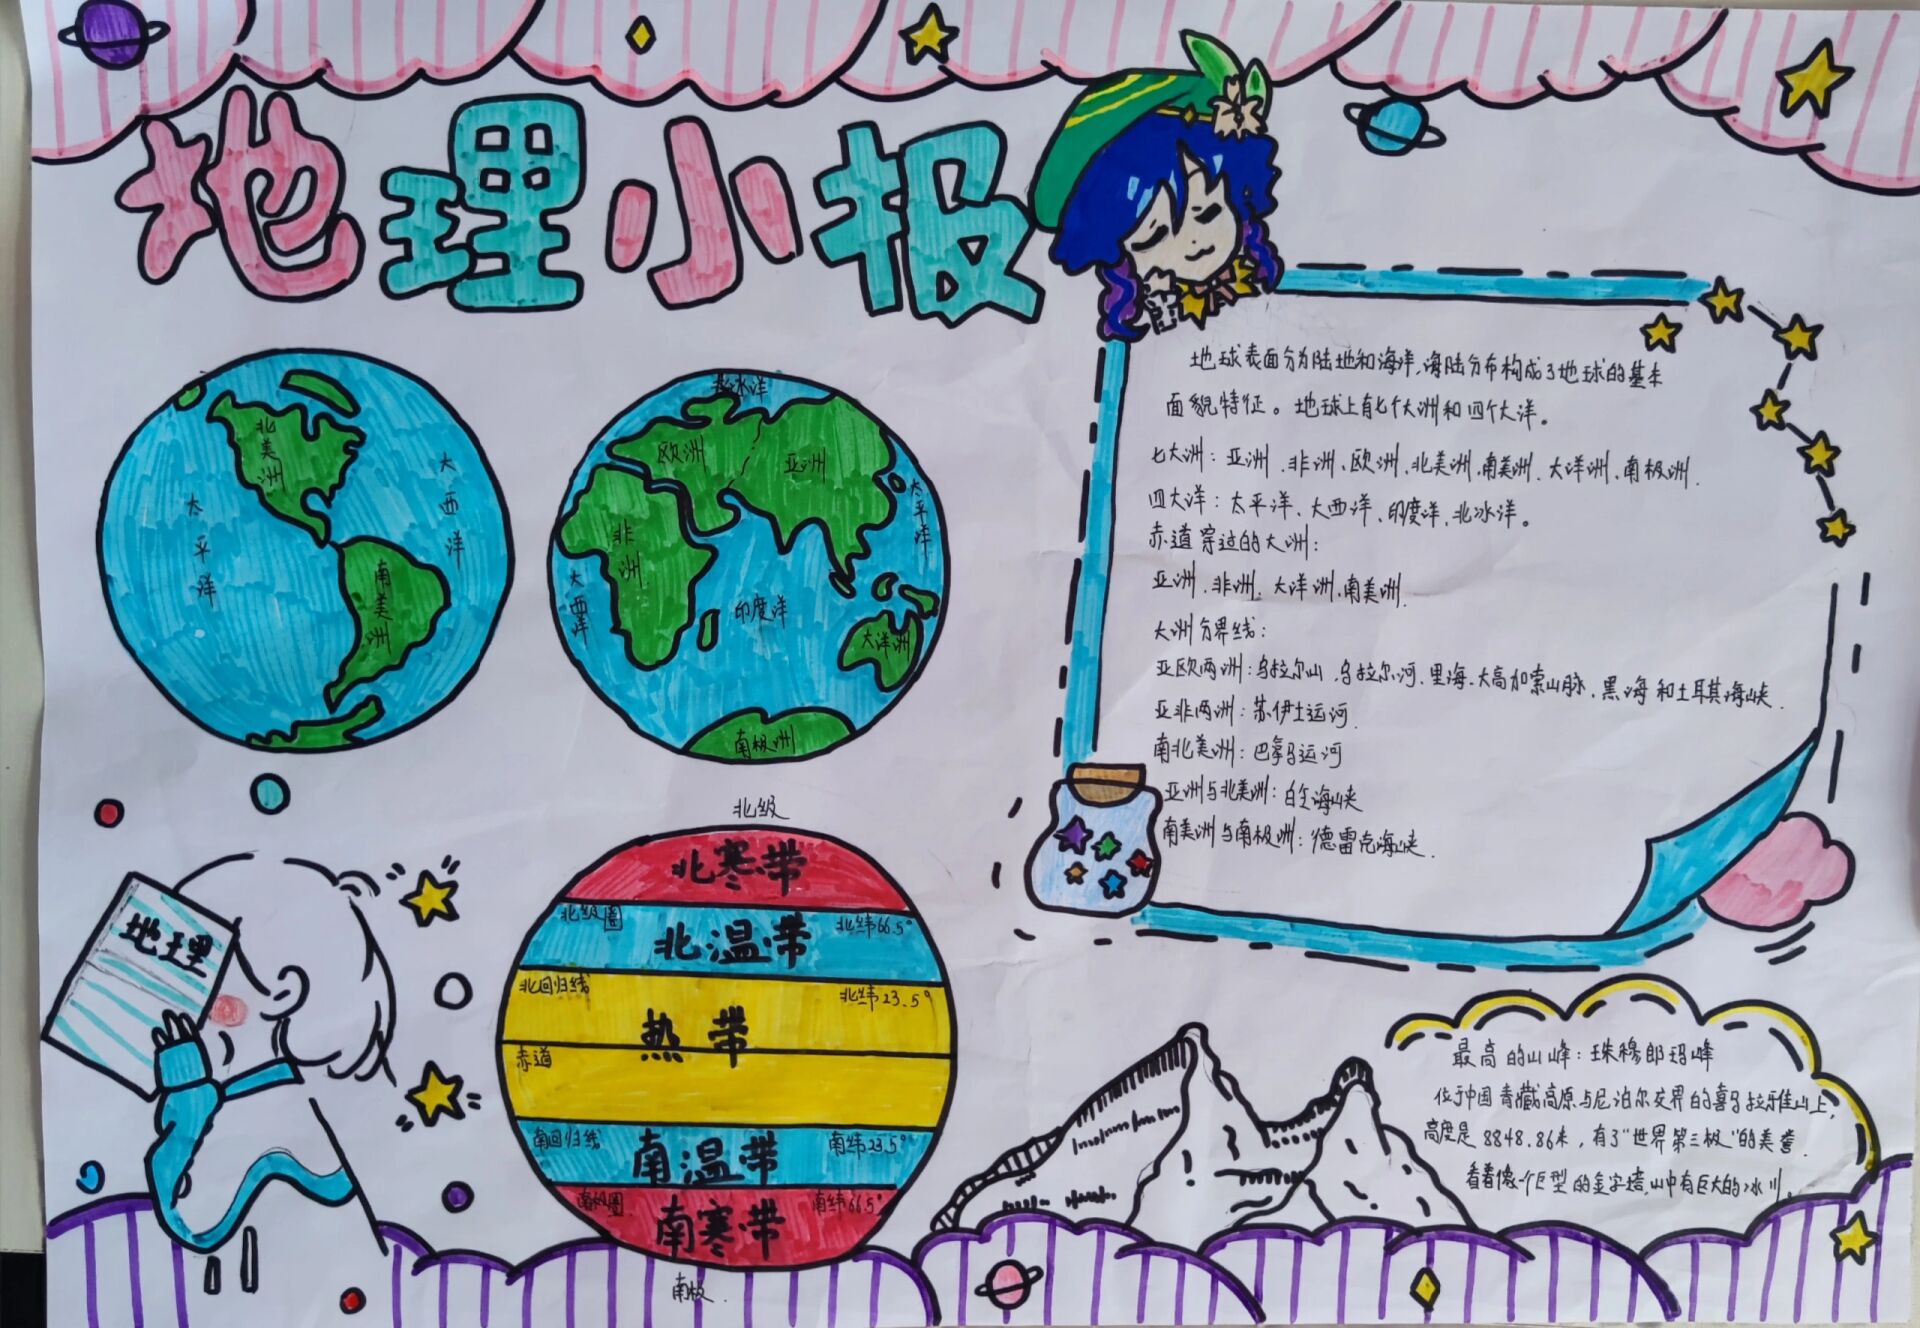 地理小报
北美洲
太平洋
大西洋
南美洲
北冰洋
欧洲
亚洲
太平洋
非洲
大西洋
印度洋
大洋洲
南极洲
地球表面分为陆地和海洋,海陆分布构成了地球的基本
面貌特征。地球上有七个大洲和四个大洋。
七大洲:亚洲、非洲、欧洲、北美洲、南美洲、大洋洲、南极洲.
四大洋:太平洋、大西洋、印度洋、北冰洋。
赤道穿过的大洲:
亚洲、非洲、大洋洲、南美洲.
大洲分界线:
亚欧两洲:乌拉尔山、乌拉尔河、里海、大高加索山脉、黑海和土耳其海峡.
亚非两洲:苏伊士运河.
南北美洲:巴拿马运河
亚洲与北美洲:白令海峡
南美洲与南极洲:德雷克海峡.
地理
北级
北寒带
北级圈
北纬66.5°
北温带
北回归线
北纬23.5°
热带
赤道
南回归线
南纬23.5°
南温带
南极圈
南纬66.5°
南寒带
南极.
最高的山峰:珠穆郎玛峰
位于中国青藏高原与尼泊尔交界的喜马拉雅山上,
高度是8848.86米,有了"世界第三极"的美誉.
看着像个巨型的金字塔,山中有巨大的冰川。